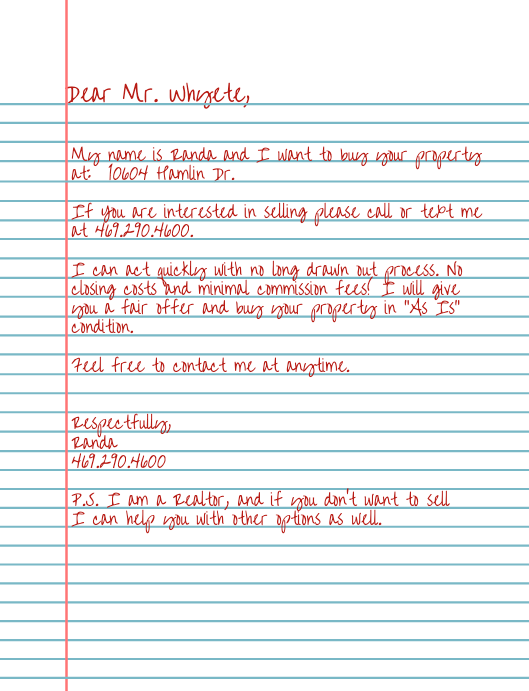 Dear Mr. Whyete,
My name is Randa and I want to buy your property
at: 10604 Hamlin Dr.
If you are interested in selling please call or text me
at 469.290.4600.
I can act quickly with no long drawn out process. No
closing costs and minimal commission fees! I will give
you a fair offer and buy your property in "As Is"
condition.
Feel free to contact me at anytime.
Respectfully,
Randa
469.290.4600
P.S. I am a Realtor, and if you don't want to sell
I can help you with other options as well.